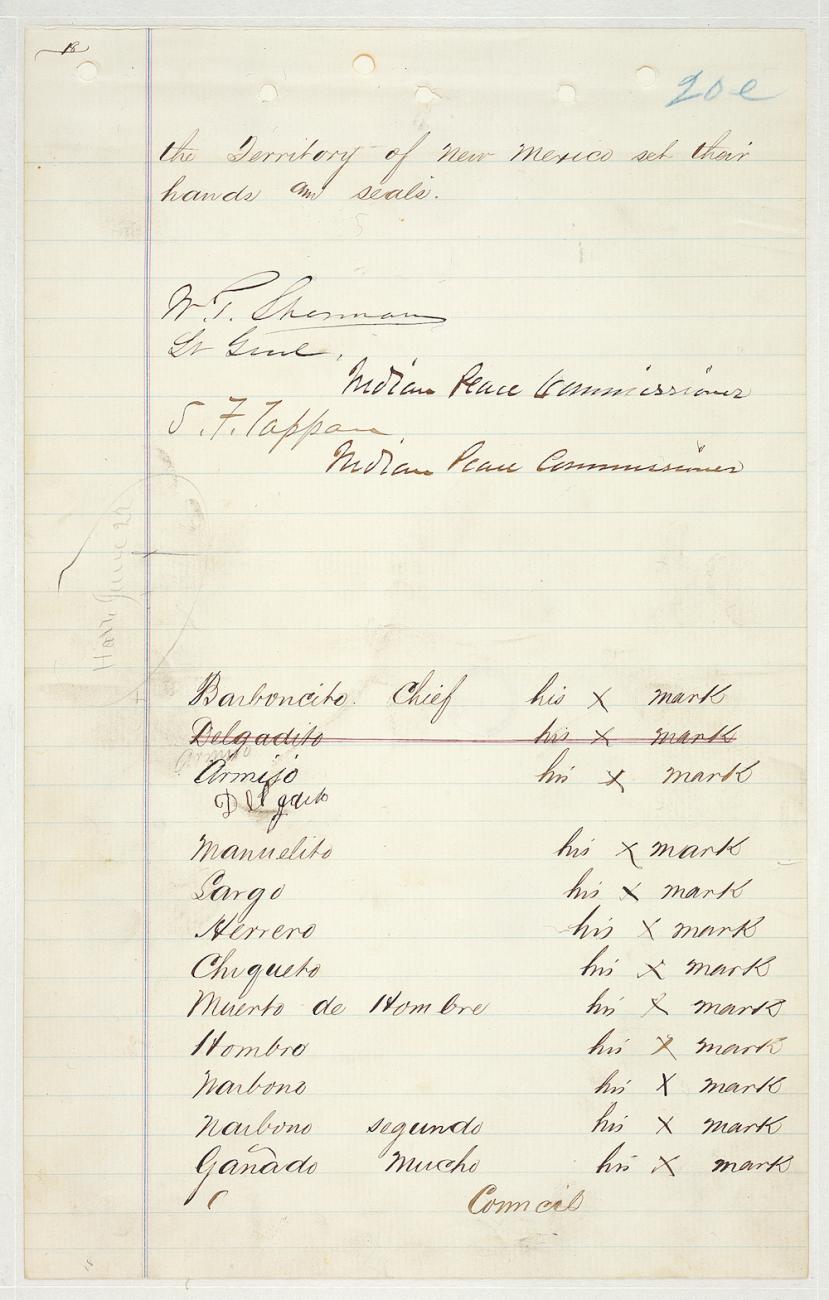 18
20 e
the Territory of New Mexico set their
hands and seals.
W. T. Sherman
Lt Genl,
Indian Peace Commissioner
S. F. Tappan
Indian Peace Commissioner
Barboncito. Chief his X mark
Delgadito his X mark
Armijo
Armijo his X mark
Delgado
Manuelito his X mark
Largo his X mark
Herrero his X mark
Chiqueto his X mark
Muerto de Hombre his X mark
Hombro his X mark
Narbono his X mark
Narbono segundo his X mark
Gañado Mucho his X mark
Council